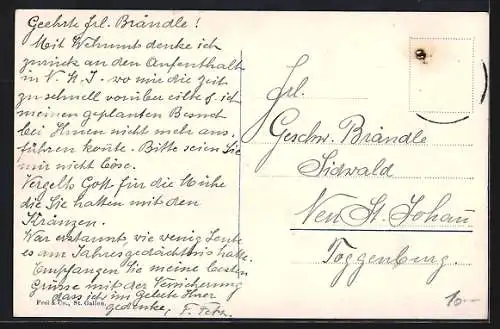 Geehrte Frl. Brändle!
Mit Wehmut denke ich
zurück an den Aufenthalt
in N. St. J. wo mir die Zeit
zu schnell vorüber eilte & ich
meinen geplanten Besuch
bei Ihnen nicht mehr aus-
führen konte. Bitte seien Sie
mir nicht böse.
Vergelts Gott für die Mühe
die Sie hatten mit den
Kränzen.
War erstaunt, wie wenig Leute
es am Jahresgedächtnis hatte.
Empfangen Sie meine besten
Grüsse mit der Versicherung
dass ich im Gebete Ihrer
gedenke,
Frei & Co., St. Gallen.
Frl.
Geschw. Brändle
Sidwald
Neu St. Johann
Toggenburg.
10.—